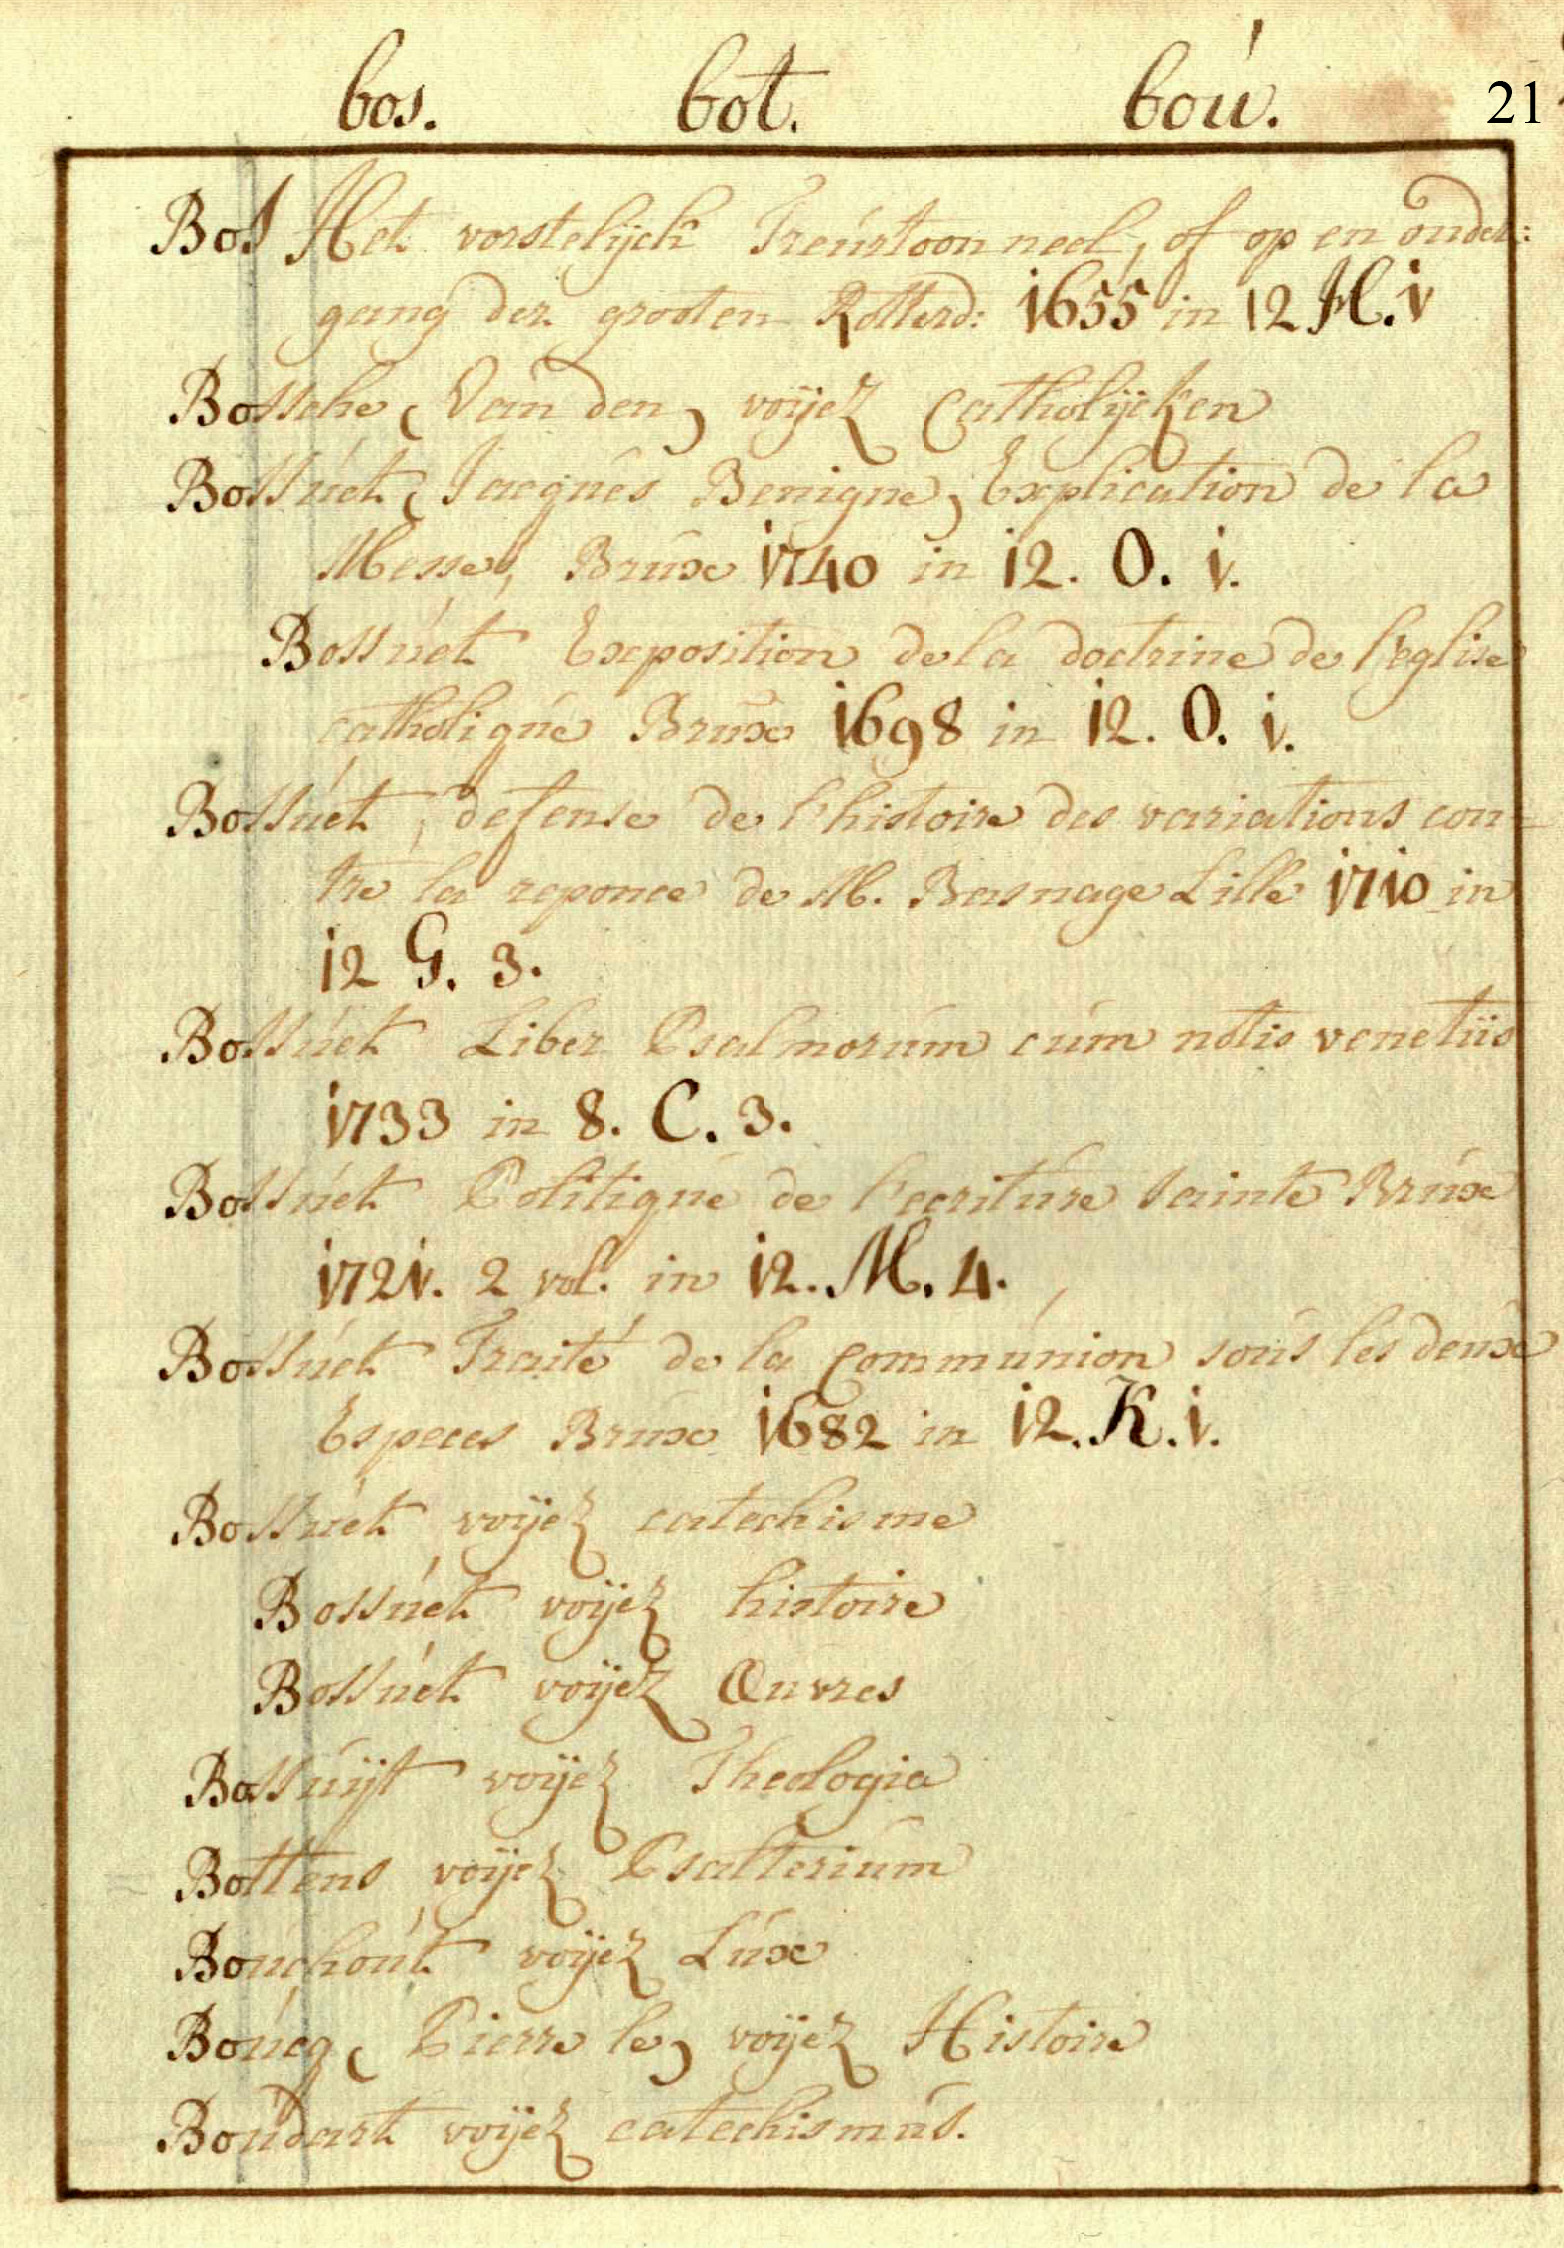 bos. bot. boú. 21
Bos Het vorstelijck Treúrtoonneel, of op en onder:
gang der grooten Rotterd: 1655 in 12 H. 1
Bossche (Van den) voijez Catholijcken
Bossúet (Jacqúes Benigne) Explication de la
Messe, Brúx 1740 in 12. O. 1.
Bossúet Exposition de la doctrine de l'eglise
catholiqúe Brúx 1698 in 12. O. 1.
Bossúet, defense de l'histoire des variations con-
tre la reponce de M. Basnage Lille 1710 in
12 G. 3.
Bossúet Liber Psalmorúm cúm notis venetiis
1733 in 8. C. 3.
Bossúet Politiqúe de l'ecritúre sainte Brúx
1721. 2 vol. in 12. M. 4.
Bossúet Traité de la Commúnion soús les deúx
Especes Brúx 1682 in 12. K. 1.
Bossúet voijez catechisme
Bossúet voijez histoire
Bossúet voijez Œuvres
Bossúijt voijez Theologia
Bottens voijez Psalteriúm
Boúchoút voijez Lúx
Boúcq (Pierre le) voijez Histoire
Boúdart voijez catechismús.